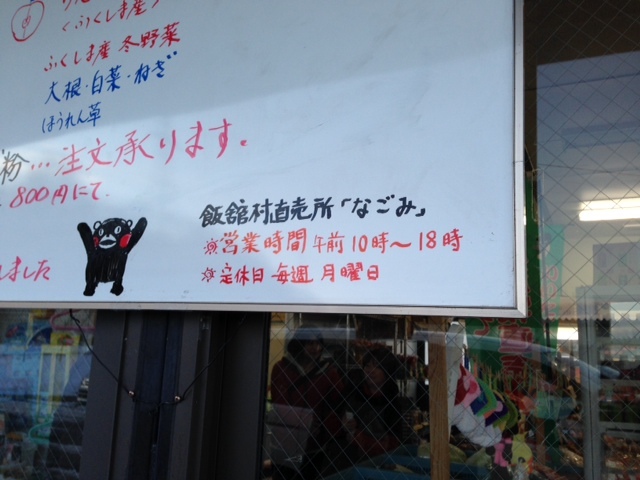 くふくしま産
ふくしま産 冬野菜
大根・白菜・ねぎ
ほうれん草
粉…注文承ります。
800円にて
飯舘村直売所「なごみ」
※営業時間 午前10時～18時
※定休日 毎週 月曜日
ました